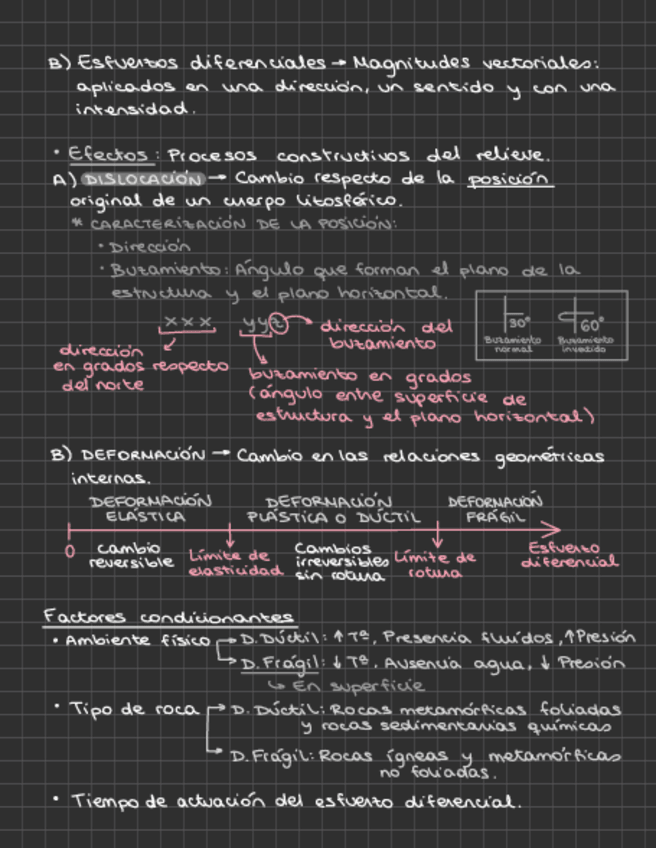 B) Esfuerzos diferenciales → Magnitudes vectoriales:
aplicados en una dirección, un sentido y con una
intensidad.
• Efectos: Procesos constructivos del relieve.
A) DISLOCACIÓN → Cambio respecto de la posición
original de un cuerpo litosférico.
* CARACTERIZACIÓN DE LA POSICIÓN:
• Dirección
• Buzamiento: Ángulo que forman el plano de la
estructura y el plano horizontal.
xxx yyz → dirección del
buzamiento
dirección
en grados respecto
del norte
buzamiento en grados
(ángulo entre superficie de
estructura y el plano horizontal)
30° 60°
Buzamiento Buzamiento
normal invertido
B) DEFORMACIÓN → Cambio en las relaciones geométricas
internas.
DEFORMACIÓN DEFORMACIÓN DEFORMACIÓN
ELÁSTICA PLÁSTICA O DÚCTIL FRÁGIL
0 cambio Límite de Cambios Límite de Esfuerzo
reversible elasticidad irreversibles rotura diferencial
sin rotura
Factores condicionantes
• Ambiente físico → D. Dúctil: ↑ Tª, Presencia fluídos, ↑ Presión
→ D. Frágil: ↓ Tª, Ausencia agua, ↓ Presión
↳ En superficie
• Tipo de roca → D. Dúctil: Rocas metamórficas foliadas
y rocas sedimentarias químicas
→ D. Frágil: Rocas ígneas y metamórficas
no foliadas.
• Tiempo de actuación del esfuerzo diferencial.